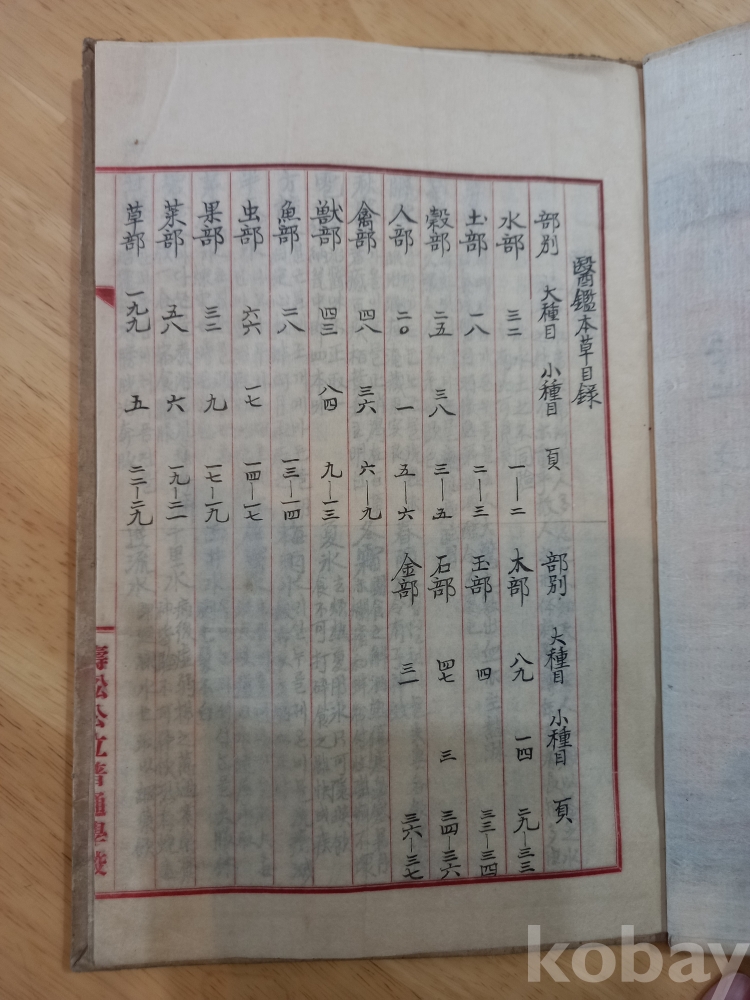 醫鑑本草目錄
部別 大種目 小種目 頁 部別 大種目 小種目 頁
水部 三二 一—二 木部 八九 一四 二九—三三
土部 一八 二—三 玉部 四 三三—三四
穀部 二五 三八 三—五 石部 四七 三 三四—三六
人部 二〇 一 五—六 金部 三一 三六—三七
禽部 四八 三六 六—九
獸部 四三 八四 九—一三
魚部 二八 一三—一四
虫部 六六 一七 一四—一七
果部 三二 九 一七—一九
菜部 五八 六 一九—二一
草部 一九九 五 二二—二九
壽松公立普通學校
kobay